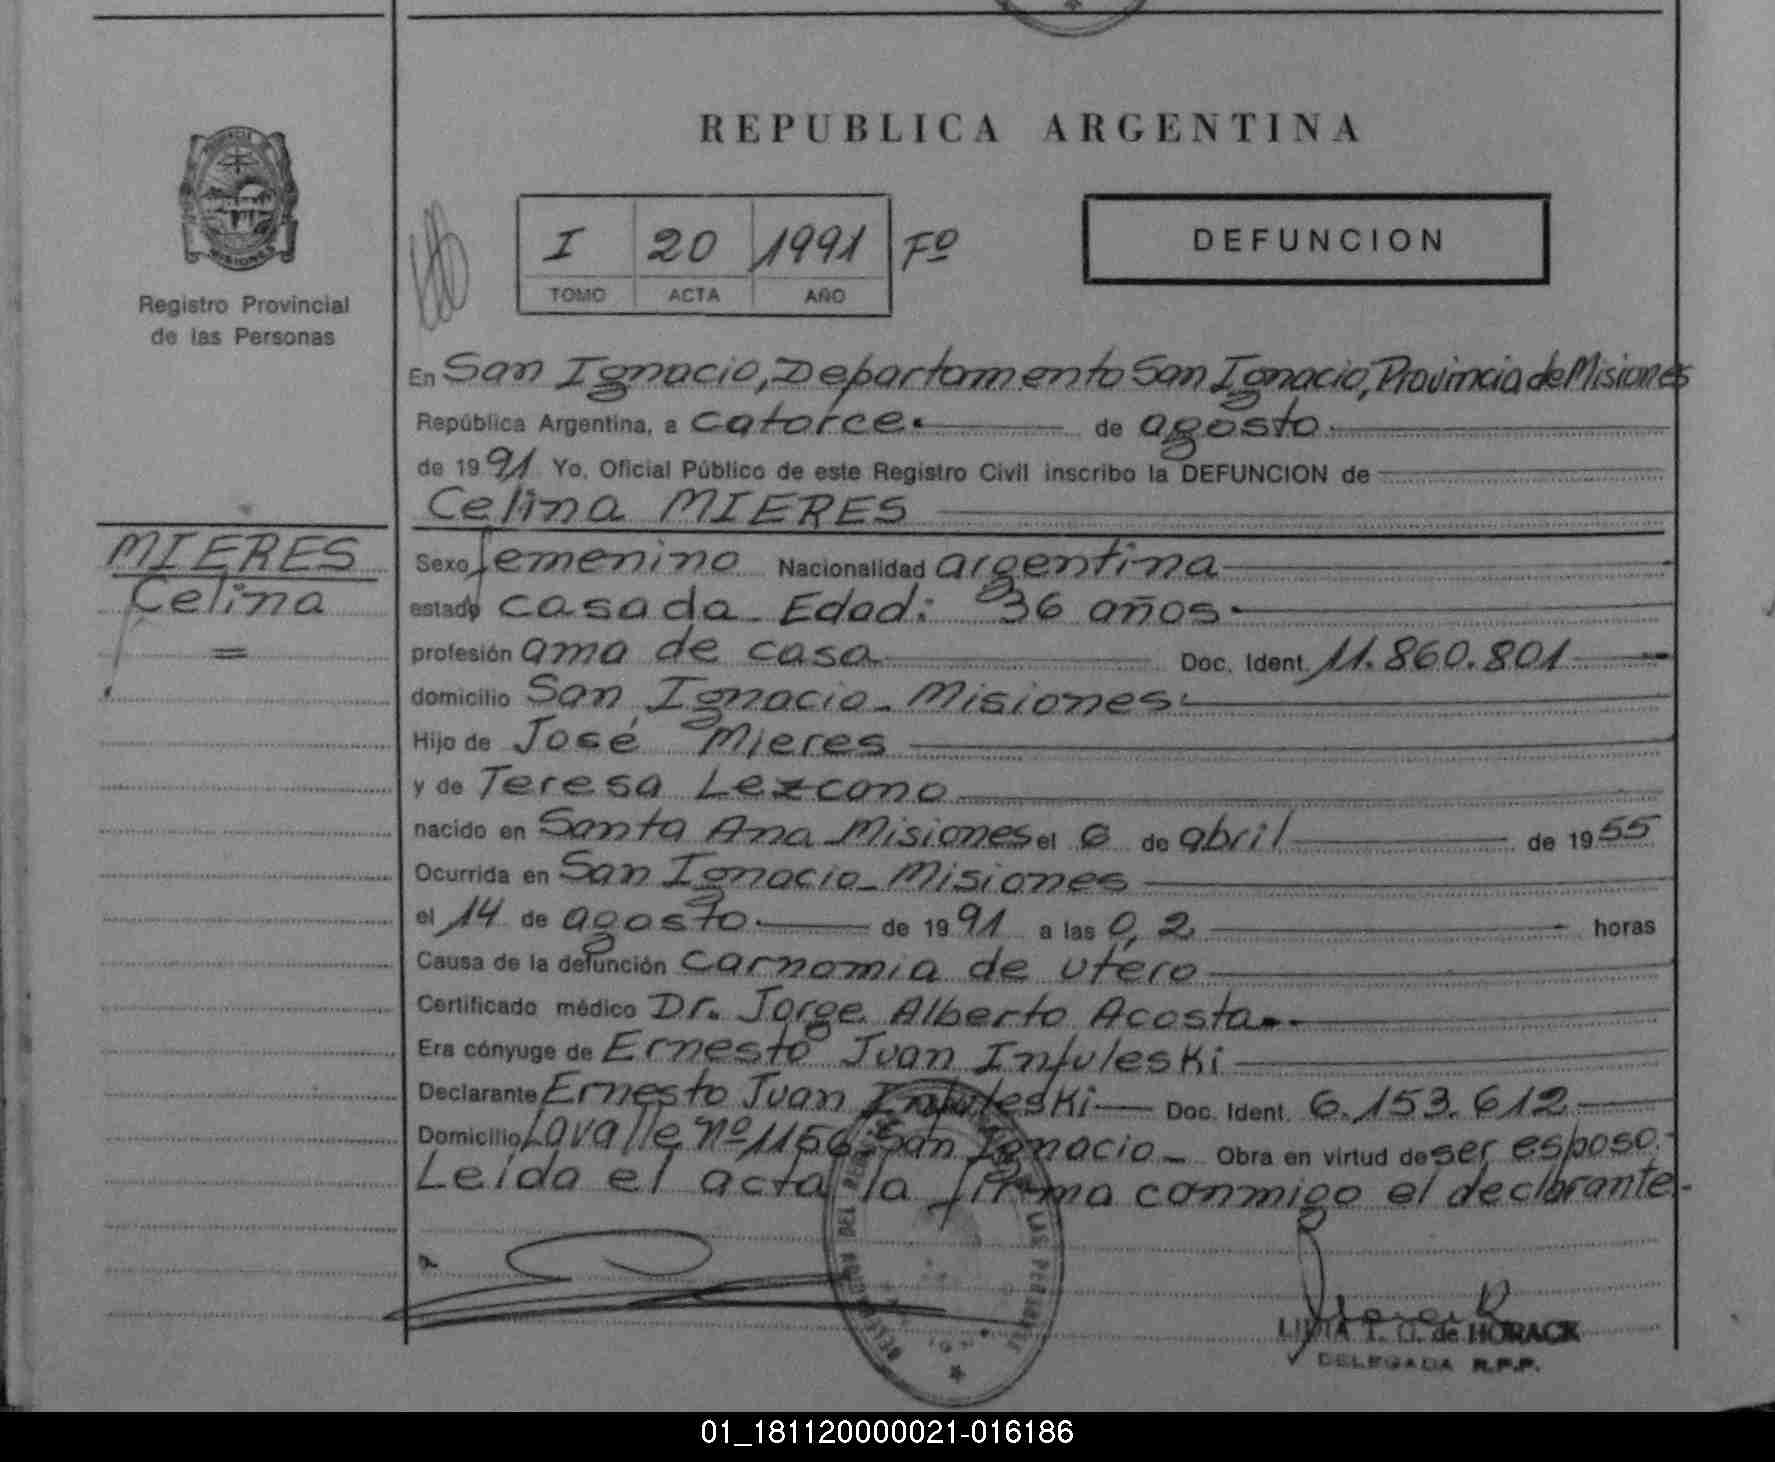 REPUBLICA ARGENTINA
PROVINCIA
MISIONES
Registro Provincial
de las Personas
I 20 1991 Fº
TOMO ACTA AÑO
DEFUNCION
En San Ignacio, Departamento San Ignacio, Provincia de Misiones
República Argentina, a catorce. de agosto.
de 1991 Yo, Oficial Público de este Registro Civil inscribo la DEFUNCION de
Celina MIERES
MIERES
Celina
=
Sexo femenino Nacionalidad argentina
estado casada - Edad: 36 años.
profesión ama de casa Doc. Ident. 11.860.801
domicilio San Ignacio - Misiones.
Hijo de José Mieres
y de Teresa Lezcano
nacido en Santa Ana Misiones el 6 de abril de 1955
Ocurrida en San Ignacio - Misiones
el 14 de agosto. de 1991 a las 0,2 horas
Causa de la defunción carnomia de utero
Certificado médico Dr. Jorge Alberto Acosta.-
Era cónyuge de Ernesto Juan Infuleski
Declarante Ernesto Juan Infuleski Doc. Ident. 6.153.612
Domicilio Lavalle nº 1156 San Ignacio - Obra en virtud de ser esposo.-
Leida el acta la firma conmigo el declarante.-
DEL LAS PERSONAS
de HORACK
DELEGADA R.P.P.
01_181120000021-016186